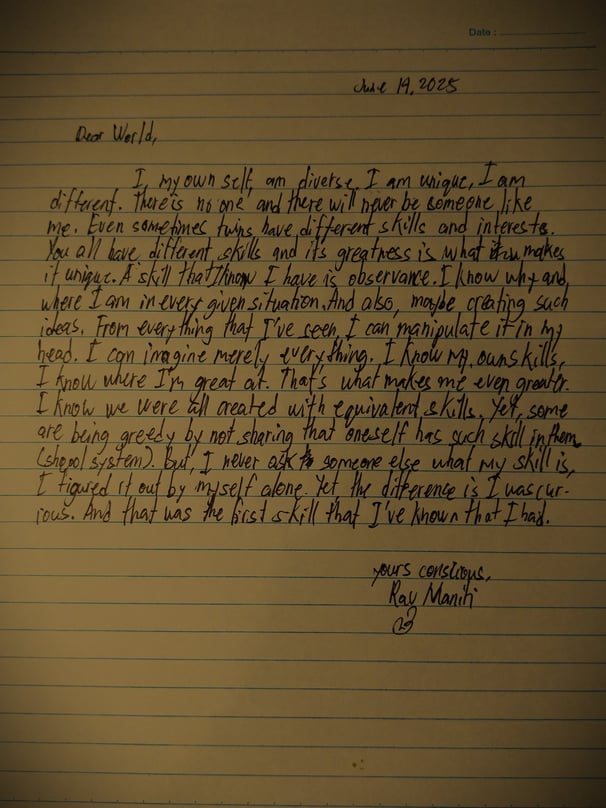 Date :
June 19, 2025
Dear World,
I, my own self, am diverse. I am unique, I am
different. There is no one and there will never be someone like
me. Even sometimes twins have different skills and interests.
You all have different skills and its greatness is what makes
it unique. A skill that I know I have is observance. I know why and
where I am in every given situation. And also, maybe creating such
ideas. From everything that I've seen, I can manipulate it in my
head. I can imagine merely everything. I know my own skills,
I know where I'm great at. That's what makes me even greater.
I know we were all created with equivalent skills. Yet, some
are being greedy by not sharing that oneself has such skill in them
(shool system). But, I never ask someone else what my skill is,
I figured it out by myself alone. Yet the difference is I was cur-
ious. And that was the first skill that I've known that I had.
yours conscious,
Rav Maniti